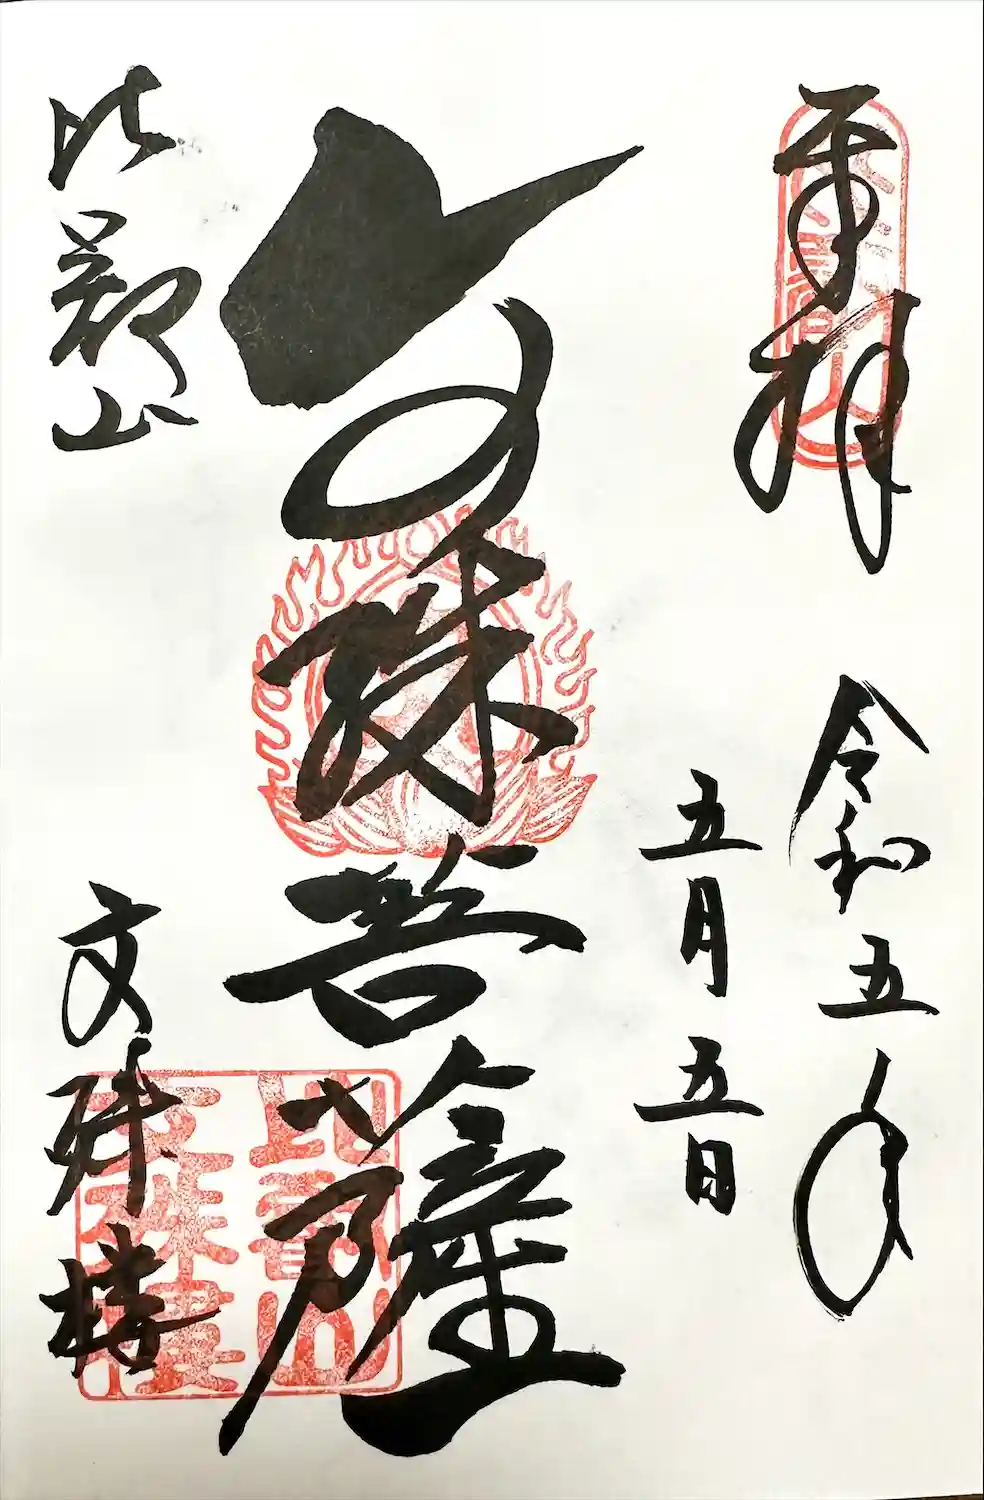 奉拝
令和五年
五月五日
文殊菩薩
比叡山
文殊楼
比叡山
文殊楼